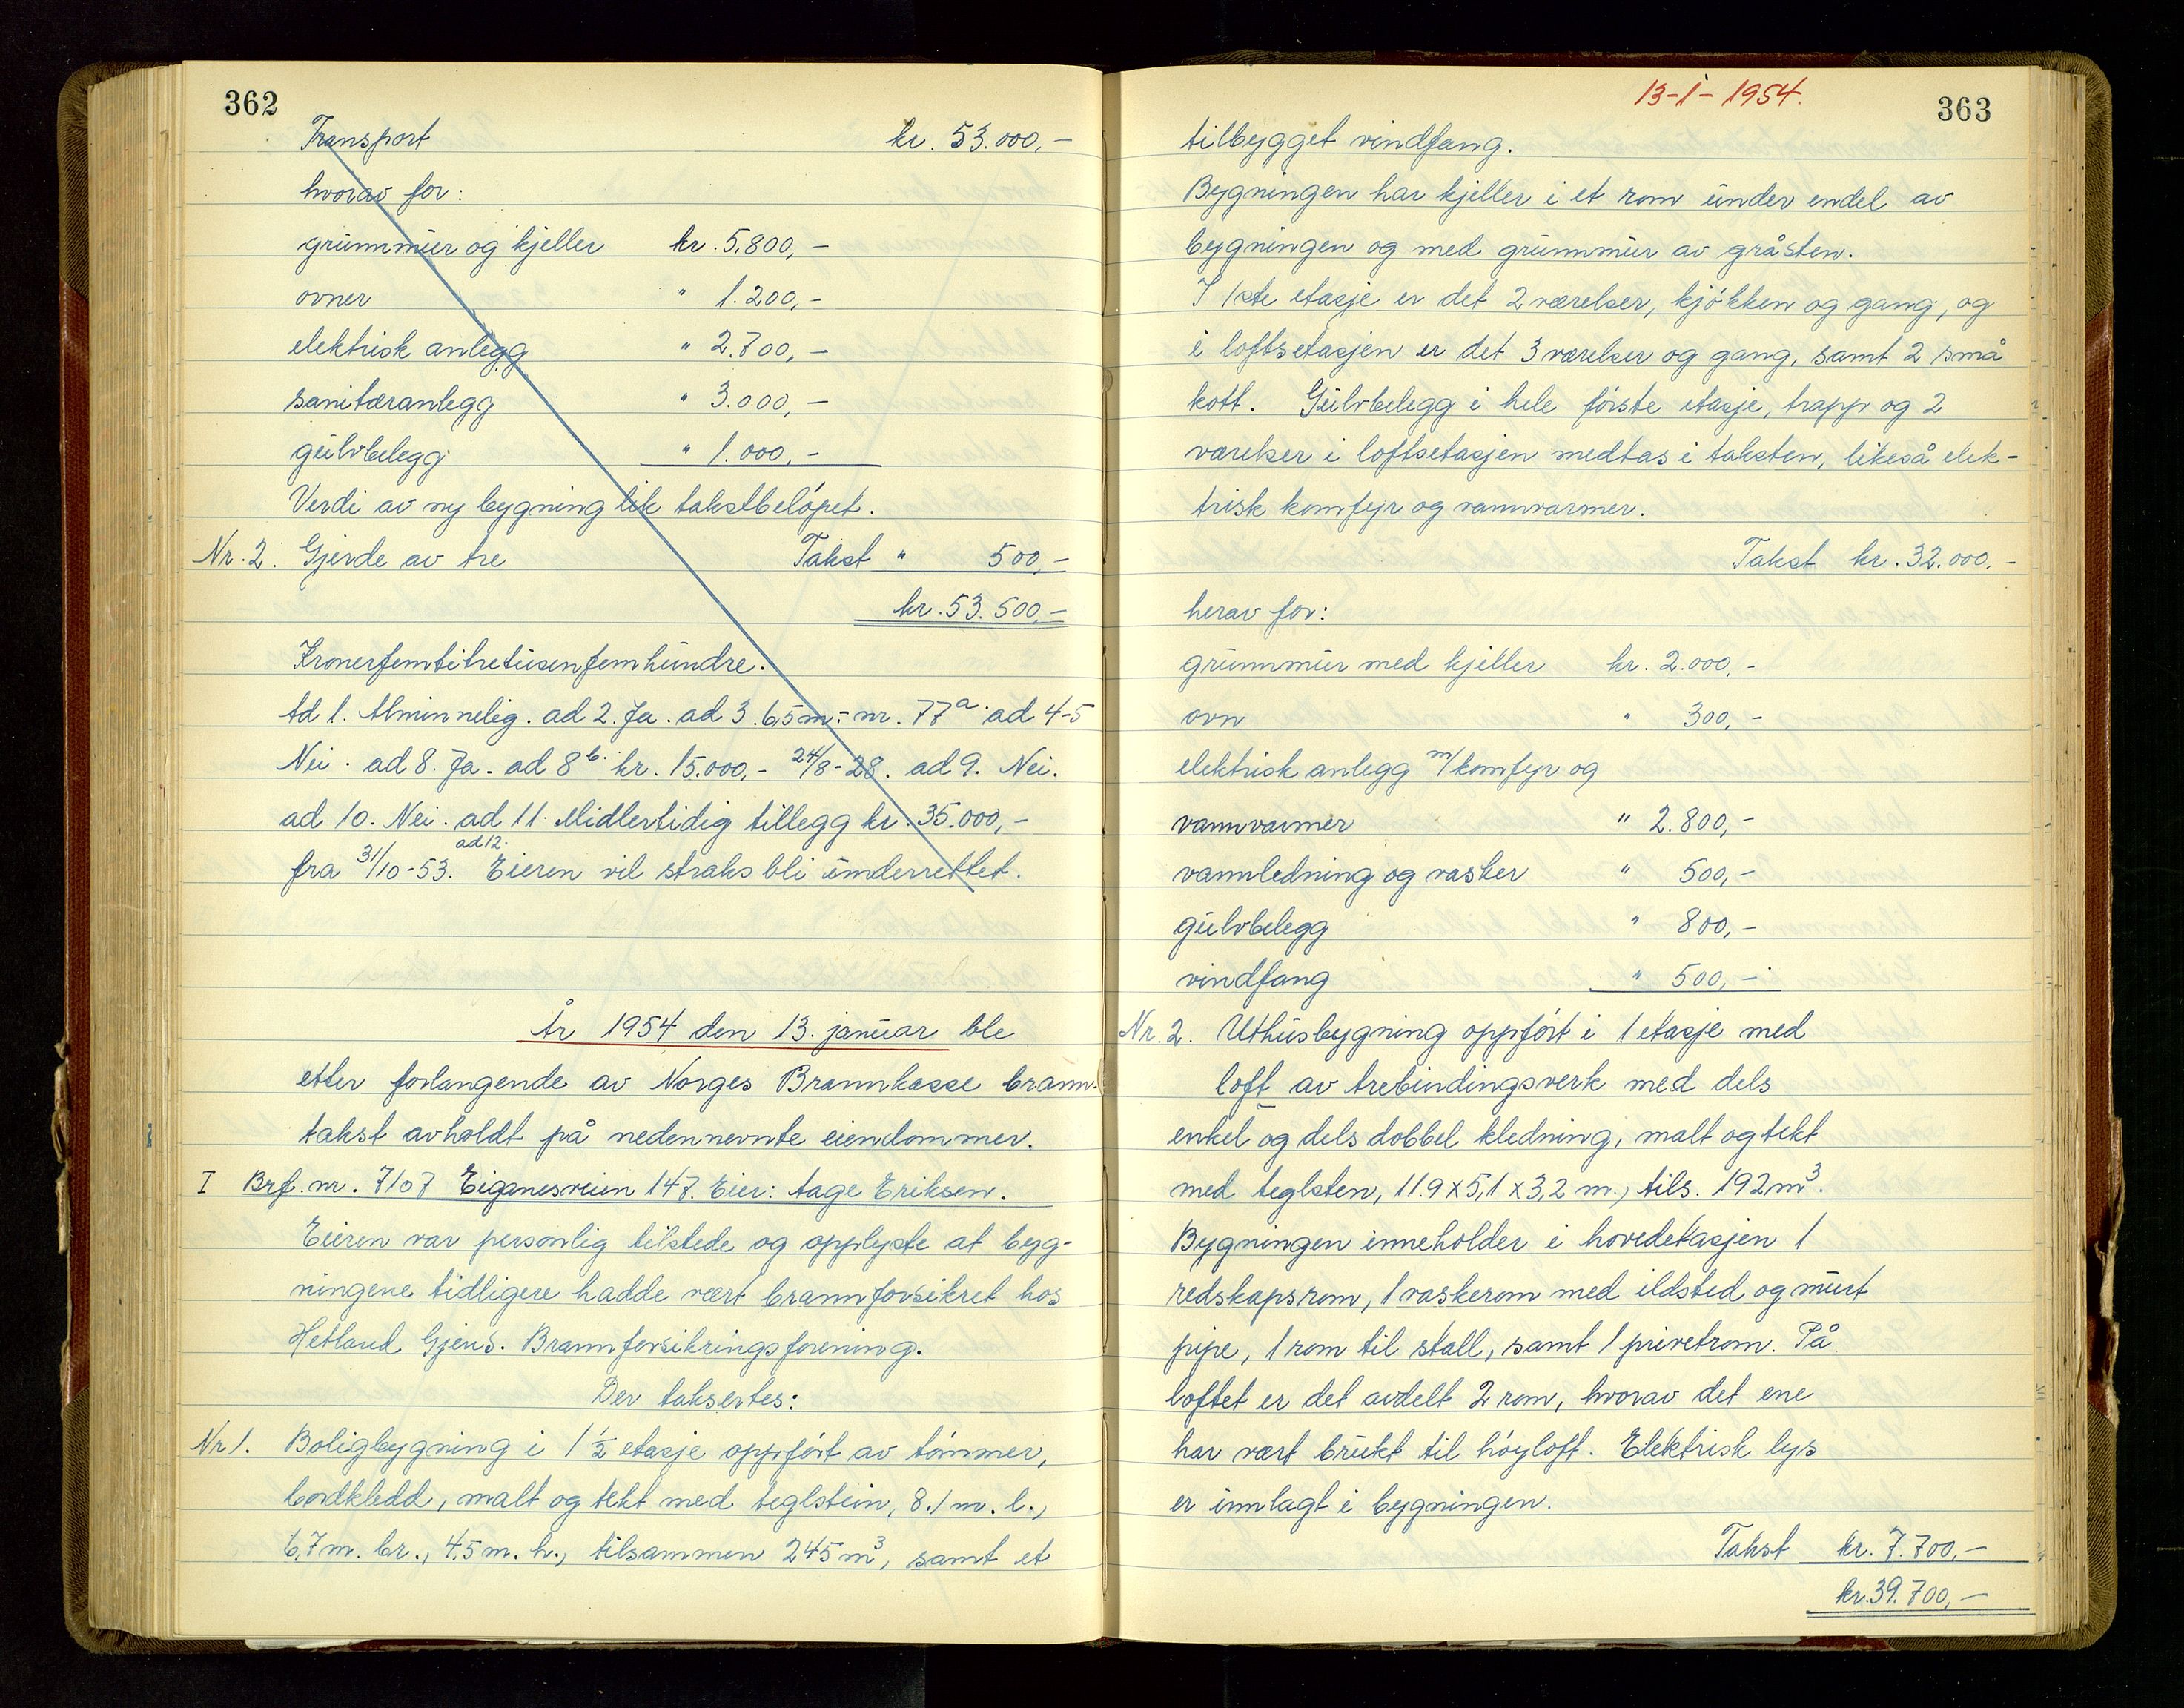 362
Transport kr. 53.000,-
hvorav for:
grunnmur og kjeller kr. 5.800,-
ovner " 1.200,-
elektrisk anlegg " 2.700,-
sanitæranlegg " 3.000,-
gulvbelegg " 1.000,-
Verdi av ny bygning lik takstbeløpet.
Nr. 2. Gjerde av tre Takst " 500,-
kr. 53.500,-
Kronerfemtitretusenfemhundre.
Ad 1. Alminnelig. ad 2. Ja. ad 3. 6,5 m.- nr. 77a. ad 4-5
Nei. ad 8. Ja. ad 8b. kr. 15.000,- 24/8-28. ad 9. Nei.
ad 10. Nei. ad 11. Midlertidig tillegg kr. 35.000,-
fra 31/10-53. ad 12. Eieren vil straks bli underrettet.
År 1954 den 13. januar ble
etter forlangende av Norges Brannkasse brann-
takst avholdt på nedennevnte eiendommer.
I Brf. nr. 7107 Eiganesveien 147. Eier: Aage Eriksen.
Eieren var personlig tilstede og opplyste at byg-
ningene tidligere hadde vært brannforsikret hos
Hetland Gjens. Brannforsikringsforening.
Der taksertes:
Nr 1. Boligbygning i 1 1/2 etasje oppført av tømmer,
bordkledd, malt og tekt med teglstein, 8.1 m. l.,
6,7 m. br., 4,5 m. h., tilsammen 245 m3, samt et
13-1-1954.
363
tilbygget vindfang.
Bygningen har kjeller i et rom under endel av
bygningen og med grunnmur av gråsten.
I 1ste etasje er det 2 værelser, kjøkken og gang, og
i loftsetasjen er det 3 værelser og gang, samt 2 små
kott. Gulvbelegg i hele første etasje, trapp og 2
værelser i loftsetasjen medtas i taksten, likeså elek-
trisk komfyr og vannvarmer.
Takst kr. 32.000,-
herav for:
grunnmur med kjeller kr. 2.000,-
ovn " 300,-
elektrisk anlegg m/komfyr og
vannvarmer " 2.800,-
vannledning og vasker " 500,-
gulvbelegg " 800,-
vindfang " 500,-
Nr. 2. Uthusbygning oppført i 1 etasje med
loft av trebindingsverk med dels
enkel og dels dobbel kledning, malt og tekt
med teglsten, 11.9 x 5,1 x 3,2 m., tils. 192 m3.
Bygningen inneholder i hovedetasjen 1
redskapsrom, 1 vaskerom med ildsted og murt
pipe, 1 rom til stall, samt 1 privetrom. På
loftet er det avdelt 2 rom, hvorav det ene
har vært brukt til høyloft. Elektrisk lys
er innlagt i bygningen.
Takst kr. 7.700,-
kr. 39.700,-